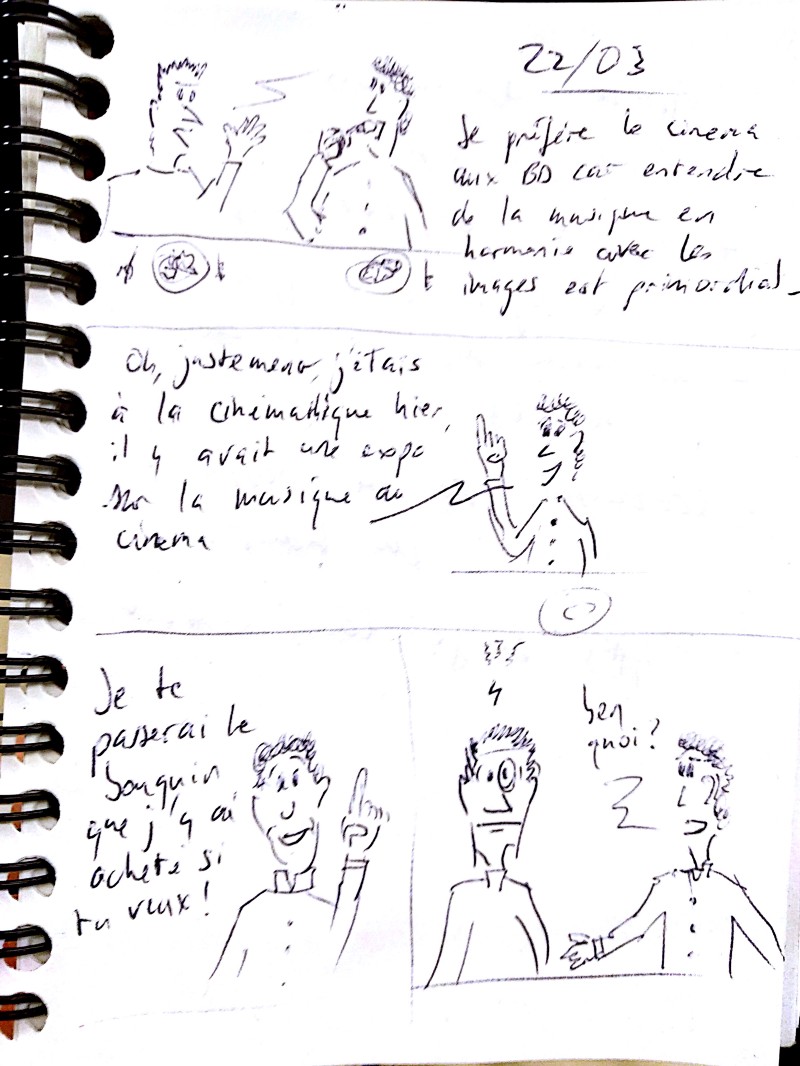 22/03
Je préfère le cinema
aux BD car entendre
de la musique en
harmonie avec les
images est primordial
Oh, justement, j'étais
à la cinémathèque hier,
il y avait une expo
sur la musique au
cinema
Je te
passerai le
bouquin
que j'y ai
acheté si
tu veux !
ben
quoi ?